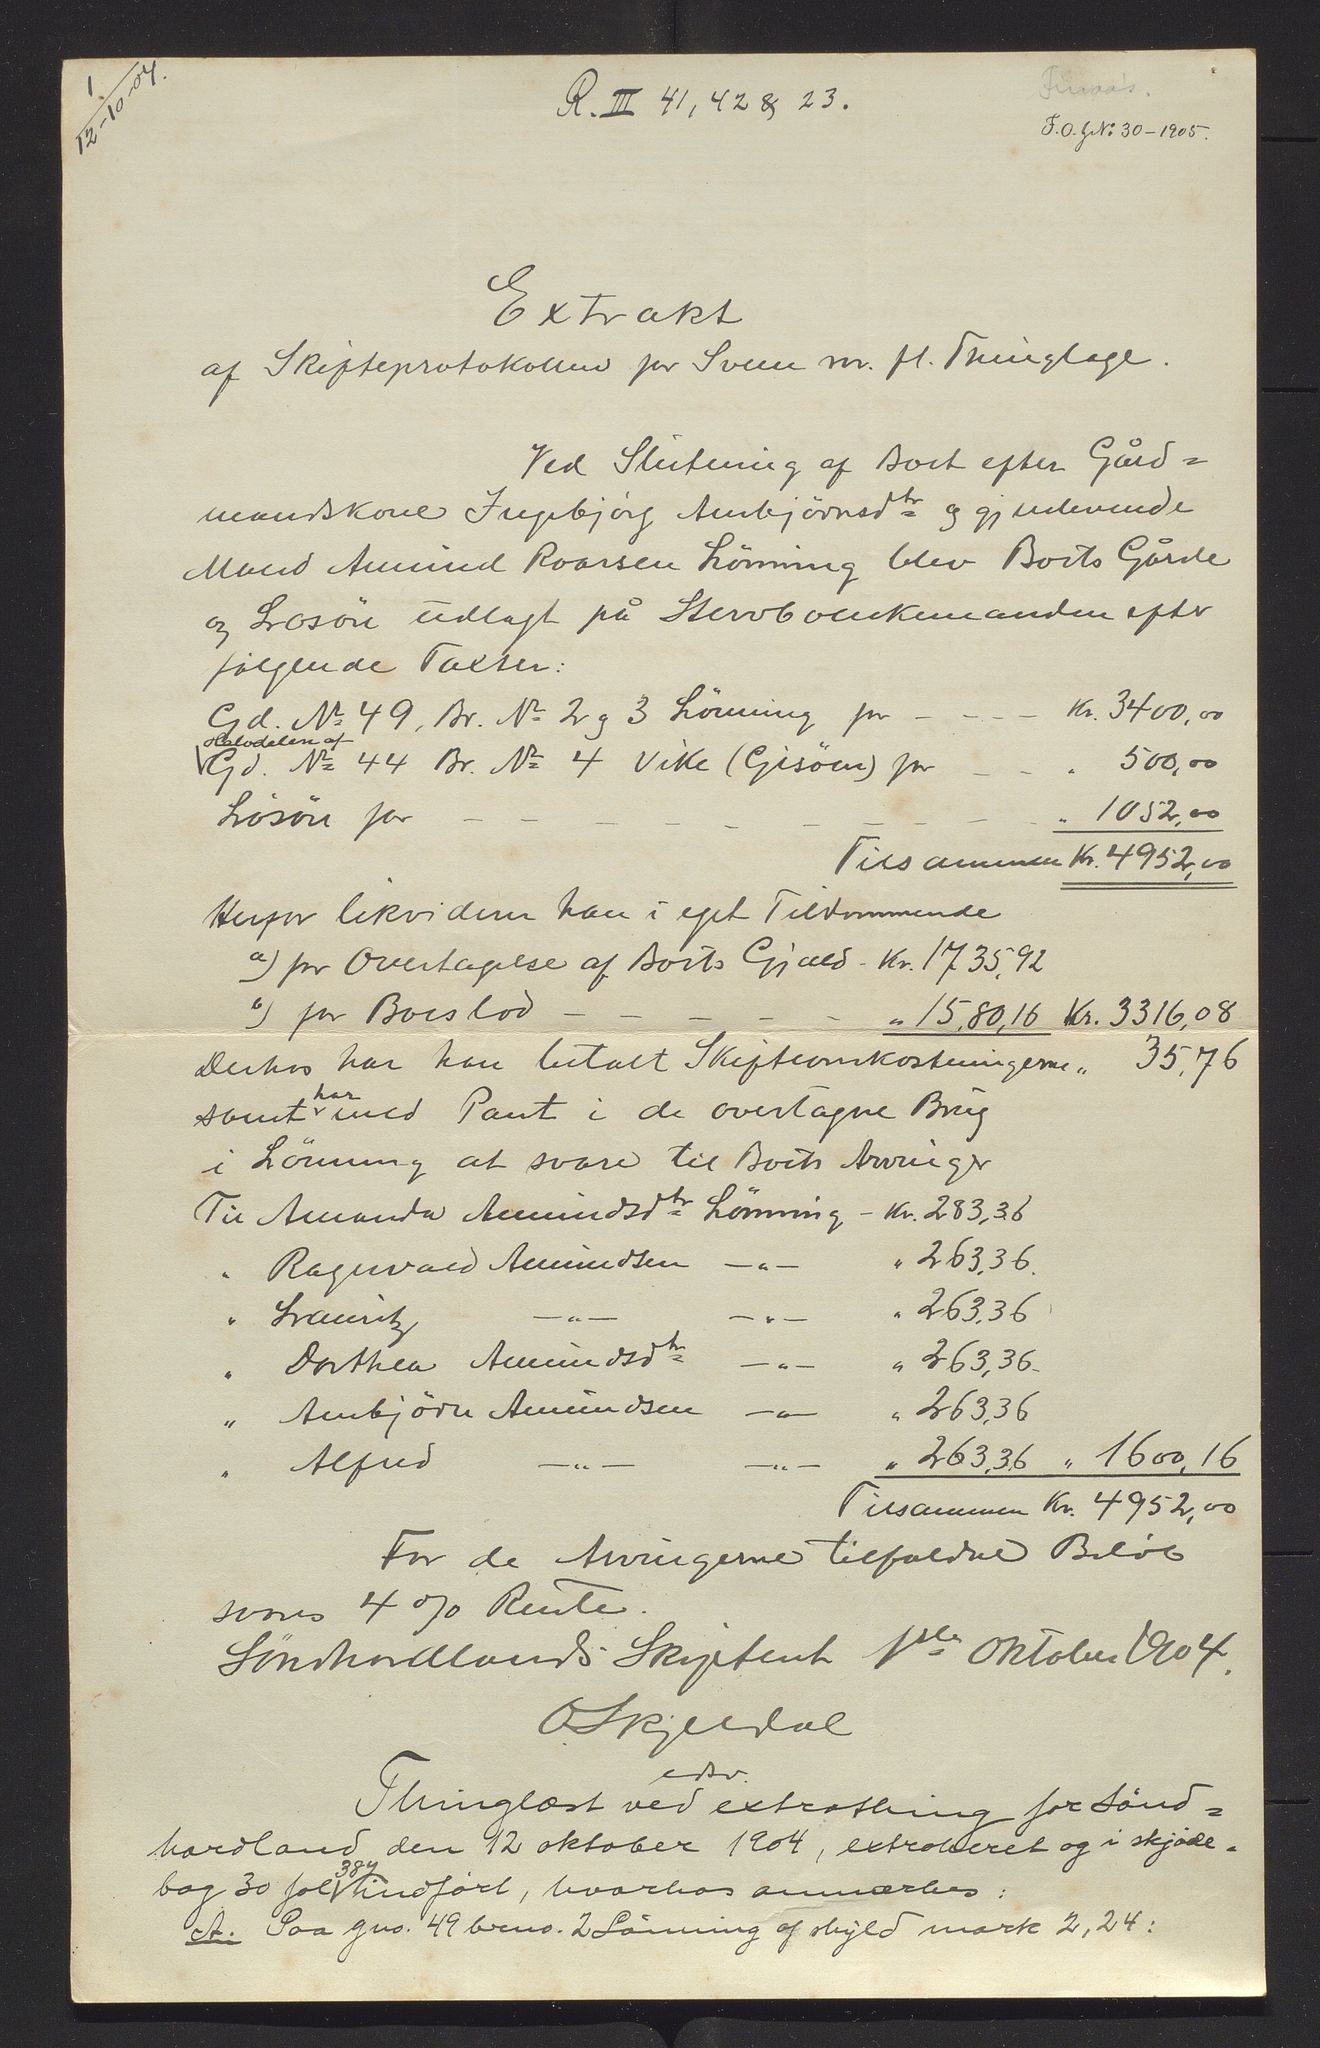 1
12-10-04.
R. III 41, 42 & 23.
Finaas.
F.O.G№ 30-1905.
Extrakt
af Skifteprotokollen for Sveen m. fl. Thinglage.
Ved Slutning af Boet efter Gård=
mandskone Ingebjörg Ambjörnsdtr og gjenlevende
Mand Amund Roarsen Lönning blev Boets Gårde
og Lösöre udlagt på Stervboenkemanden efter
følgende Taxter:
Gd. № 49, Br. № 2 og 3 Lönning for - - - - Kr. 3400,00
Halvdelen af
Gd. № 44 Br. № 4 Vike (Gisöen) for - - " 500,00
Lösöre for - - - - - - - - - - " 1052,00
Tilsammen Kr. 4952,00
Herfor likviderer han i eget Tilkommende
a) for Overtagelse af Boets Gjæld - Kr. 1735,92
b) for Boeslod - - - - - " 15,80,16 Kr. 3316,08
Derhos har han betalt Skifteomkostningerne " 35,76
samt har med Pant i de overtagne Brug
i Lönning at svare til Boets Arvinger
Til Amanda Amundsdtr Lönning - Kr. 283,36
" Ragnvald Amundsen -"- " 263,36.
" Lauritz -"- -"- " 263,36
" Dorthea Amundsdtr -"- " 263,36-
" Ambjörn Amundsen -"- " 263,36
" Alfred -"- -"- " 263,36 " 1600,16
Tilsammen Kr. 4952,00
For de Arvingerne tilfaldne Beløb
svares 4 o/o Rente.
Söndhordlands Skifteret 1ste Oktober 1904.
O Skjeldal
edsv.
Thinglæst ved extrathing for Sönd=
hordland den 12 oktober 1904, extraheret og i skjöde-
bog 30 fol 384 indfört, hvorhos anmærkes:
A. Paa gno. 49 brno. 2 Lönning af skyld mark 2,24: